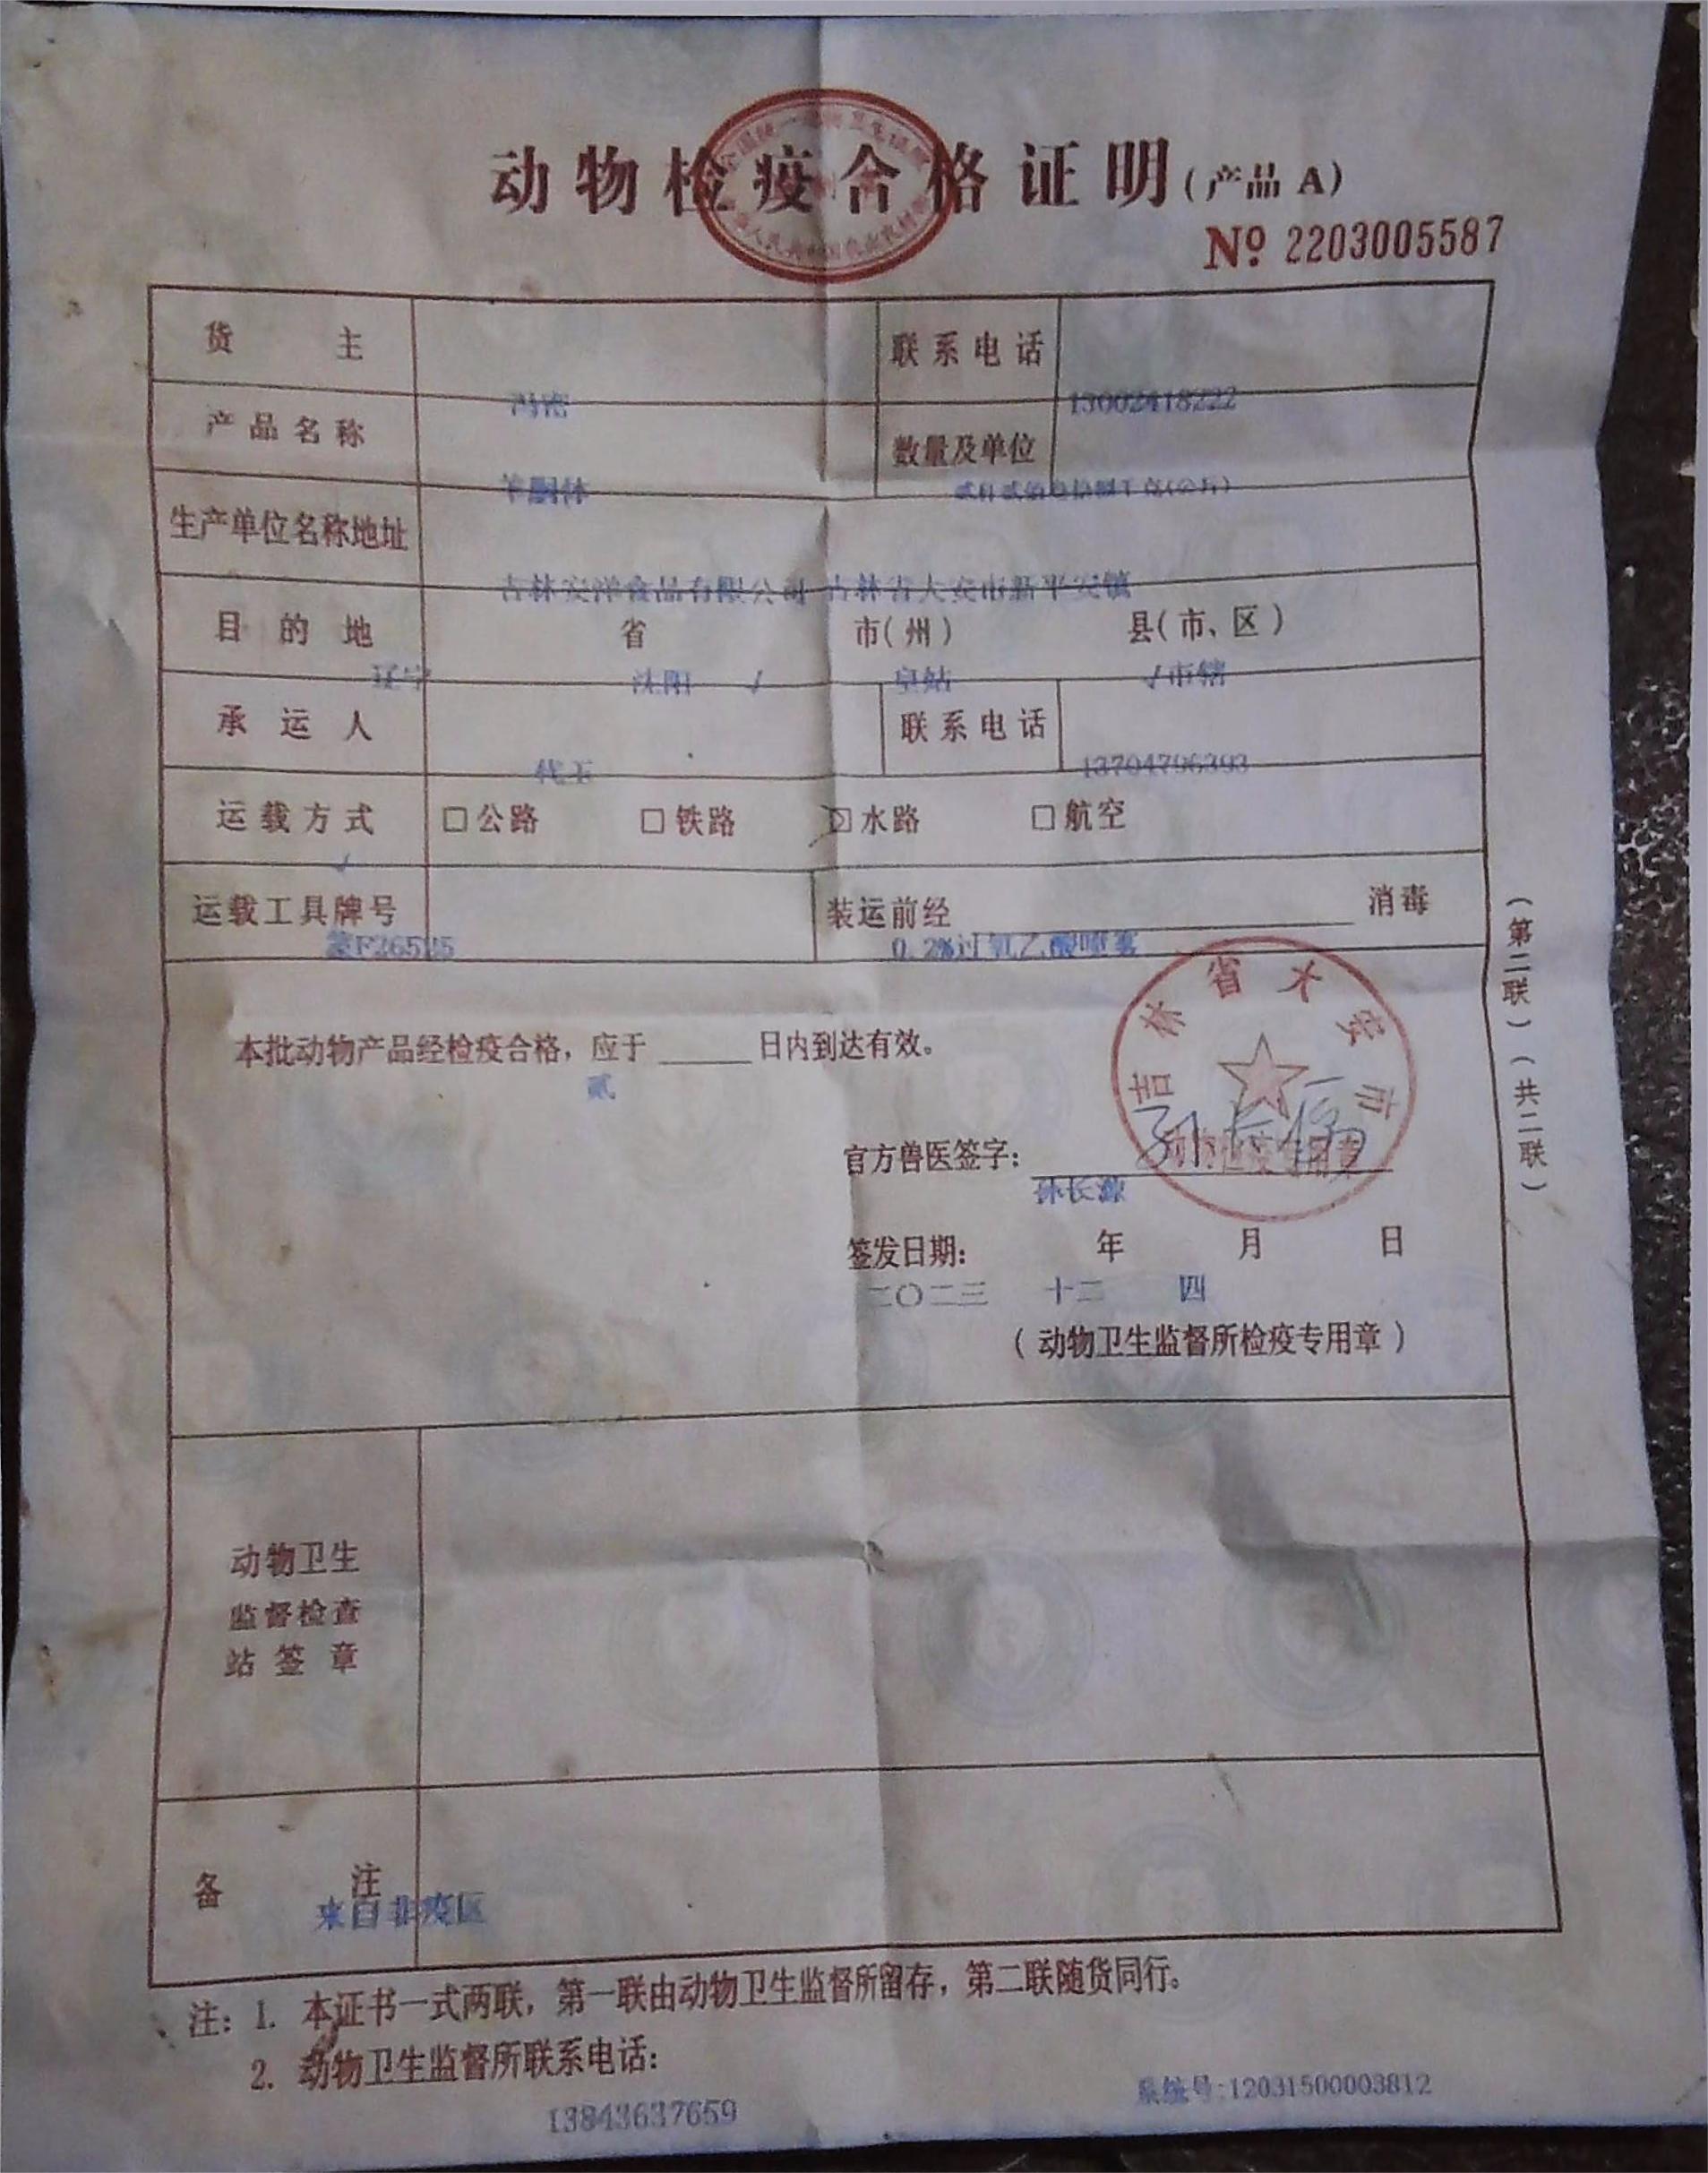 动物检疫合格证明(产品 A)
№ 2203005587
货 主
联系电话
13002418222
产品名称
数量及单位
羊胴体
生产单位名称地址
吉林安洋食品有限公司 吉林省大安市新平安镇
目的地 省 市(州) 县(市、区)
辽宁 沈阳 √ 皇姑 √市辖
承运人
联系电话
代玉
13704796393
运载方式 □公路 □铁路 ☑水路 □航空
√
运载工具牌号
装运前经 消毒
蒙F26525
0.2%过氧乙酸喷雾
本批动物产品经检疫合格，应于 日内到达有效。
贰
吉林省大安市
动物检疫专用章
官方兽医签字：
孙长源
签发日期： 年 月 日
二〇二三 十二 四
(动物卫生监督所检疫专用章)
(第二联)(共二联)
动物卫生
监督检查
站签章
备 注
来自非疫区
注：1. 本证书一式两联，第一联由动物卫生监督所留存，第二联随货同行。
2. 动物卫生监督所联系电话：
13843637659
系统号:12031500003812